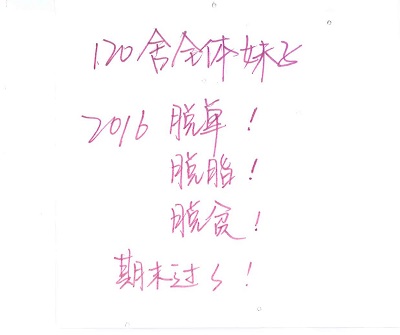 120舍全体妹
2016 脱单！
脱脂！
脱贫！
期末过！